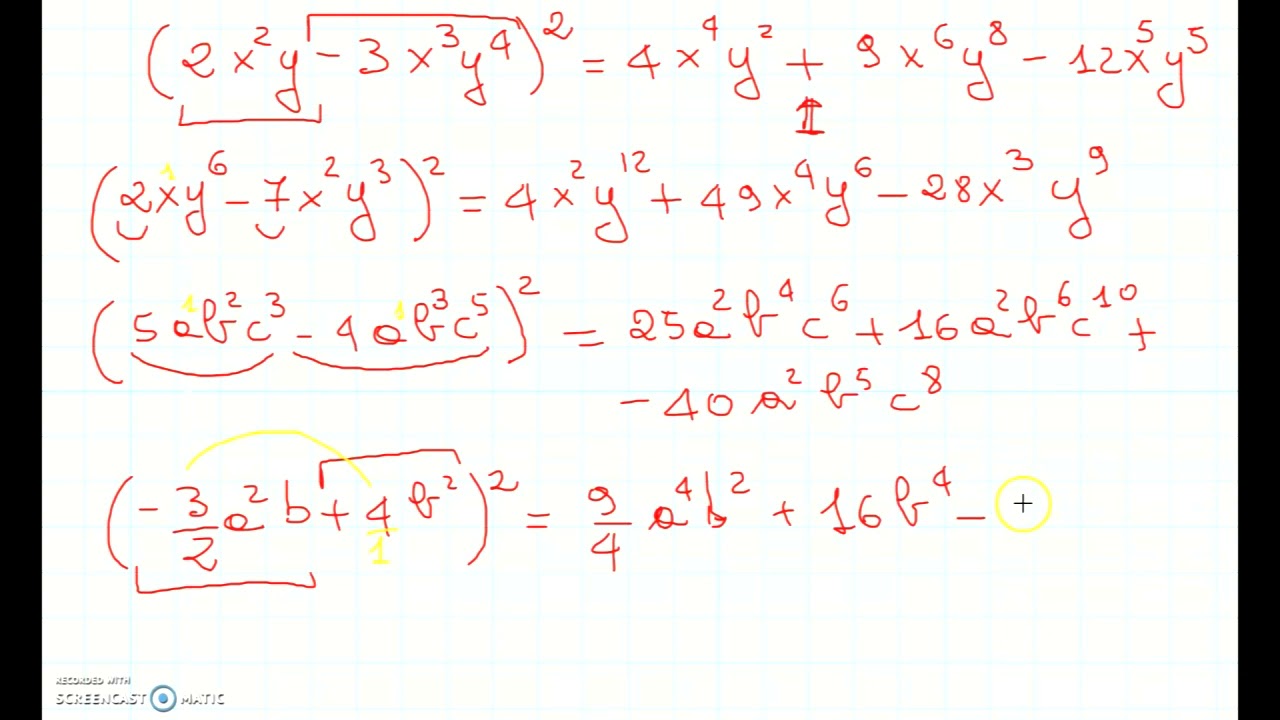 (2x²y - 3x³y⁴)² = 4x⁴y² + 9x⁶y⁸ - 12x⁵y⁵
(2x¹y⁶ - 7x²y³)² = 4x²y¹² + 49x⁴y⁶ - 28x³y⁹
(5a¹b²c³ - 4a¹b³c⁵)² = 25a²b⁴c⁶ + 16a²b⁶c¹⁰ +
- 40a²b⁵c⁸
(-3/2 a²b + 4/1 b²)² = 9/4 a⁴b² + 16b⁴ -
RECORDED WITH
SCREENCAST MATIC